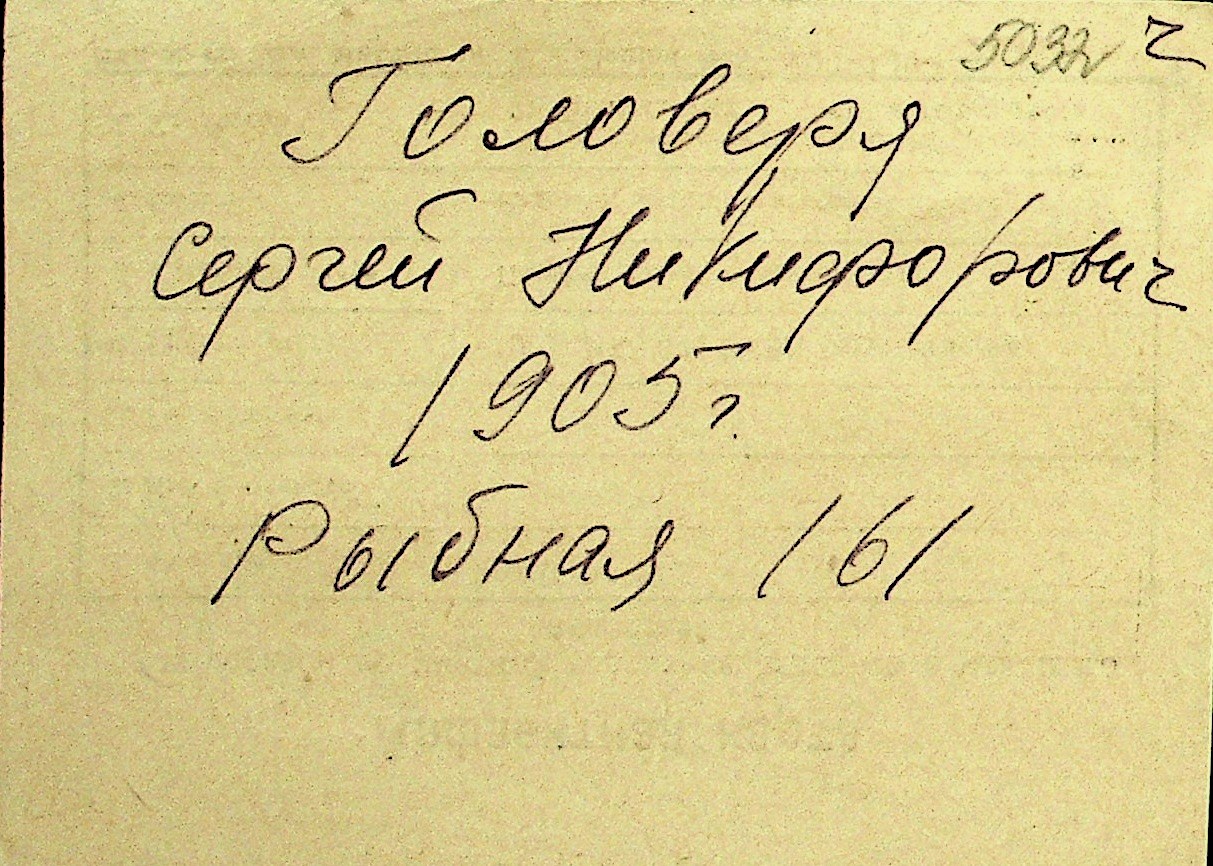 ч
Головеря
Сергей Никифорович
1905 г.
Рыбная 161